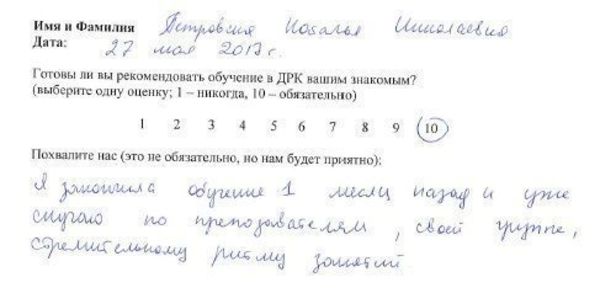 Имя и Фамилия Петровская Наталья Николаевна
Дата: 27 мая 2017 г.
Готовы ли вы рекомендовать обучение в ДРК вашим знакомым?
(выберите одну оценку; 1 – никогда, 10 – обязательно)
1 2 3 4 5 6 7 8 9 10
Похвалите нас (это не обязательно, но нам будет приятно):
Я закончила обучение 1 месяц назад и уже
скучаю по преподавателям, своей группе,
стремительному ритму занятий